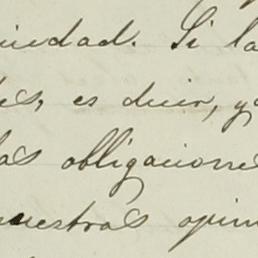 iedad. Si la
es, es decir, ya
las obligaciones
nuestras opin